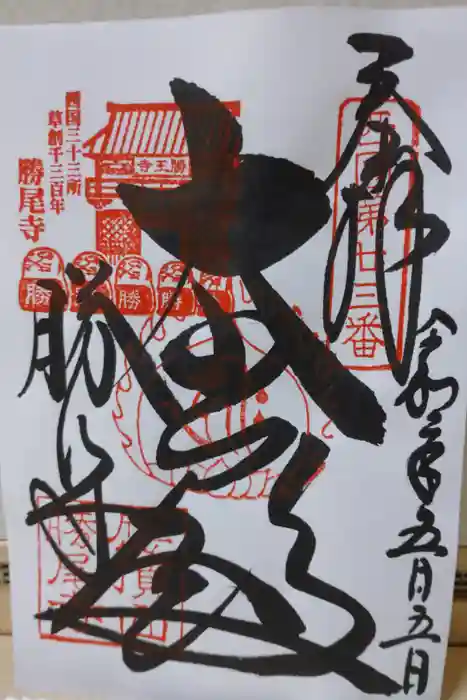 奉拝
西国第廿三番
令和二年五月五日
大悲殿
勝尾寺
西国三十三所
草創千三百年
勝尾寺
勝王寺
勝
勝
勝
勝